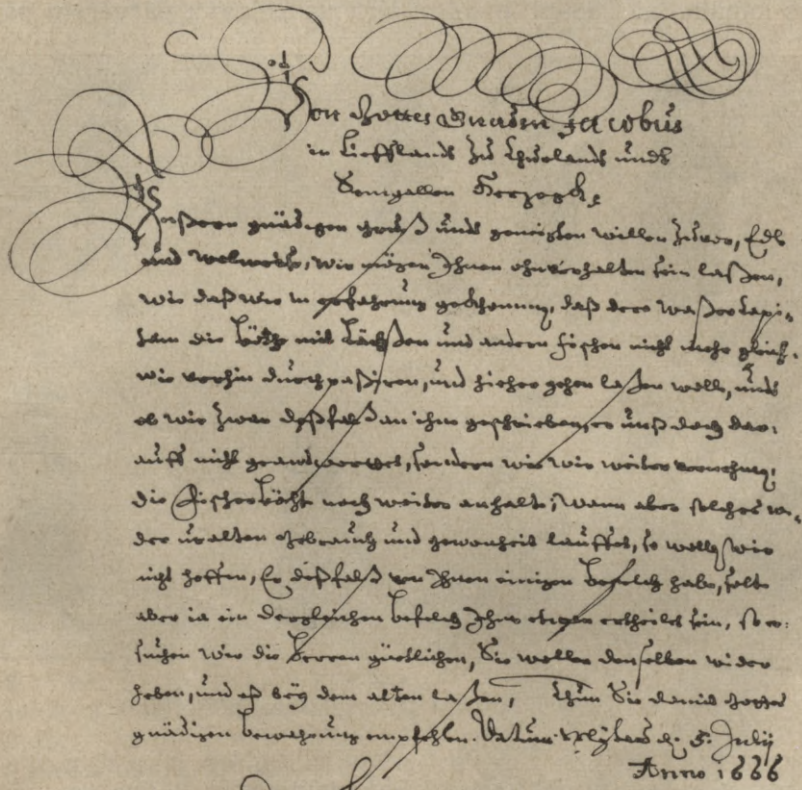 Von Gottes Gnaden Jacobus
in Liefflandt zu Churlandt undt
Semgallen Hertzogk
Unßeren gnädigen gruß undt geneigten willen zuvor, Edle
und wir mögen Ihnen ohnverhalten sein laßen,
wie daß wir in erfahrung gekommen, daß dero waßer Capi-
tein die Böthe mit Lächßen und andern fischen nicht mehr gleich
wie vorhin durchpaßiren, und hieher gehen laßen wolle, undt
ob wir zwar deßfalß an ihm geschrieben, er unß doch dar-
auff nicht geandtwortet, sondern wie wir weiter vernehmen,
die Fischerböthe noch weiter anhalte; Wann aber solches wi-
der uralten gebrauch und gewonheit lauffet, so wollen wir
nicht hoffen, Er deßfalß von Ihnen einigen befelch habe, solte
aber ia ein dergleichen befelch Ihm ertheilet sein, so er-
suchen wir die Herren gütlichen, Sie wollen denselben wider
heben, und eß bey dem alten laßen, Thun Sie damit Gottes
gnädigen bewahrung empfehlen. Datum d. 5. July
Anno 1666